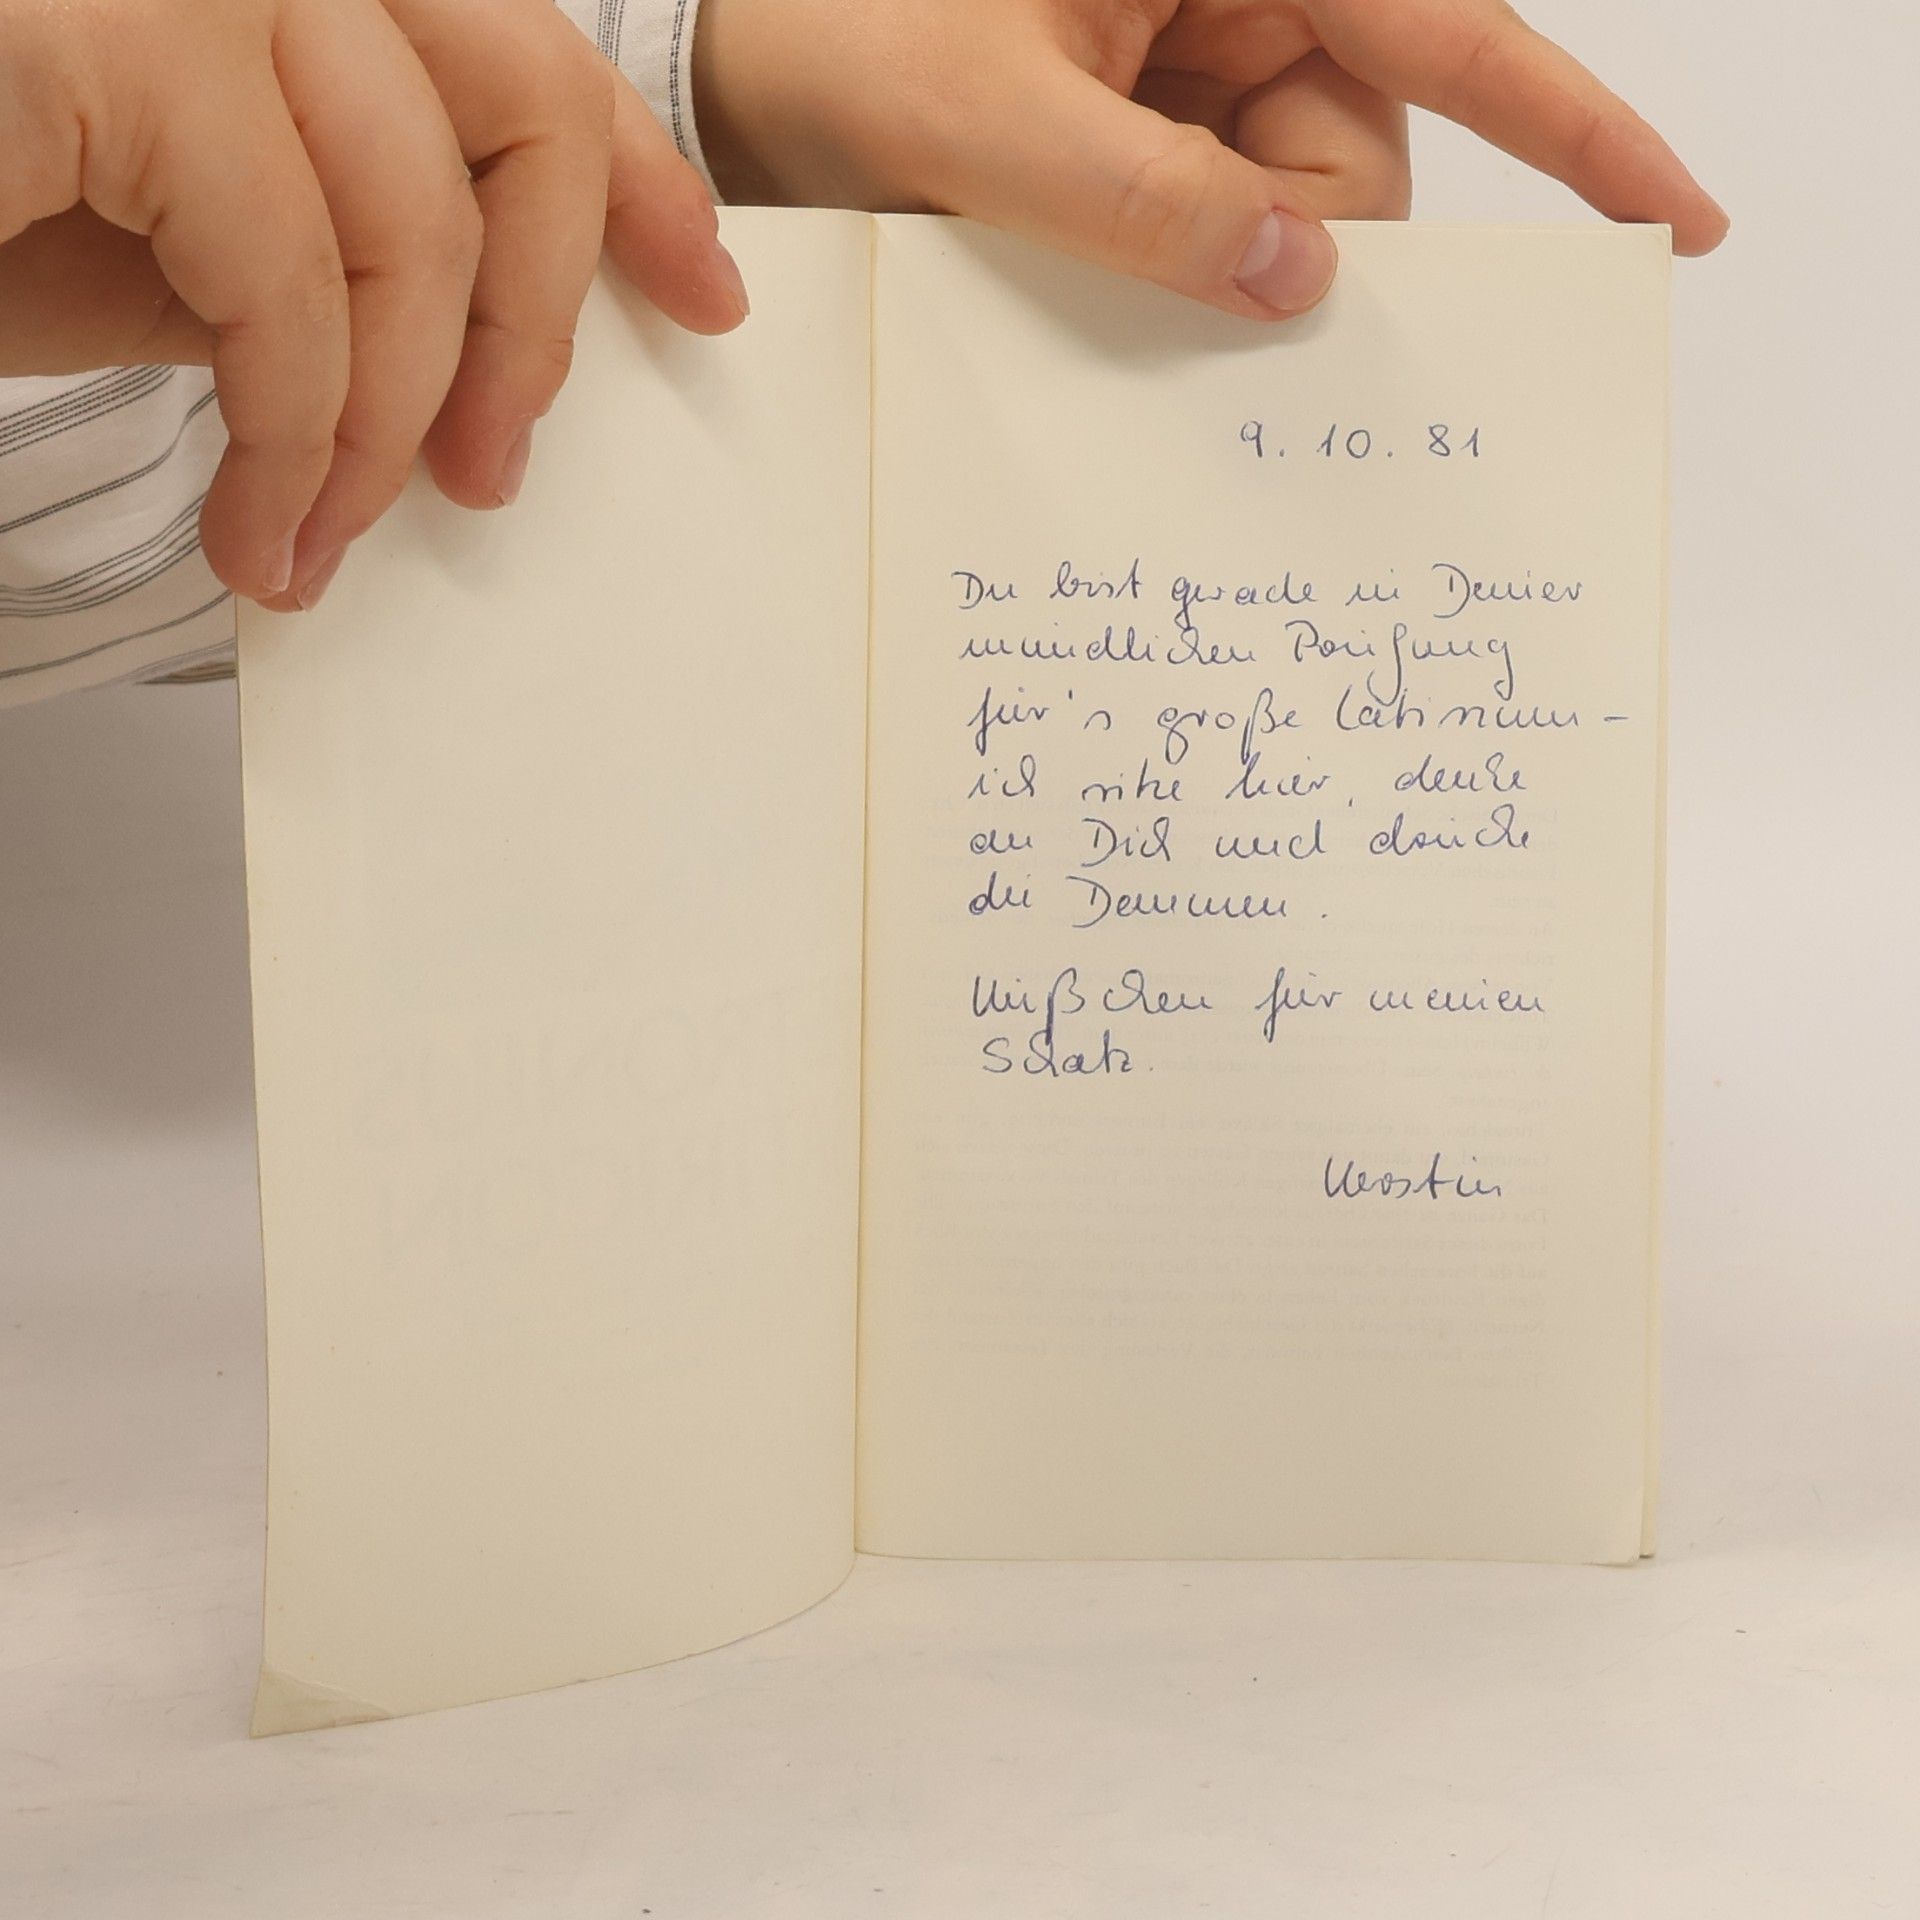 9. 10. 81
Du bist gerade in Deiner
mündlichen Prüfung
für's große Latinum –
ich sitze hier, denke
an Dich und drücke
die Daumen.
Küßchen für meinen
Schatz.
Kerstin